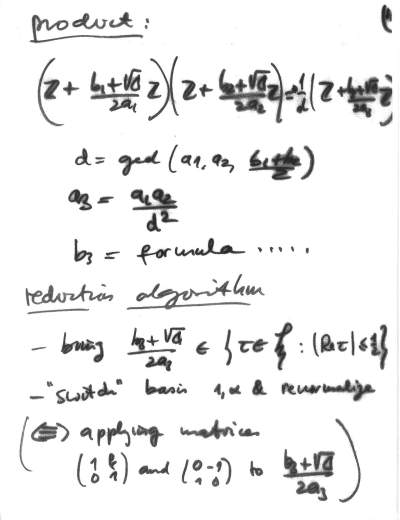 product:
(Z + (b₁+√Δ)/(2a₁) Z)(Z + (b₂+√Δ)/(2a₂) Z) = 1/d (Z + (b₃+√Δ)/(2a₃) Z)
d = gcd (a₁, a₂, (b₁+b₂)/2)
a₃ = a₁a₂/d²
b₃ = formula .....
reduction algorithm
- bring (b₃+√Δ)/(2a₃) ∈ {τ ∈ : |Re τ| ≤ ½}
- "switch" basis 1, α & renormalize
(⇔) applying matrices
(1 k; 0 1) and (0 -1; 1 0) to (b₃+√Δ)/(2a₃))